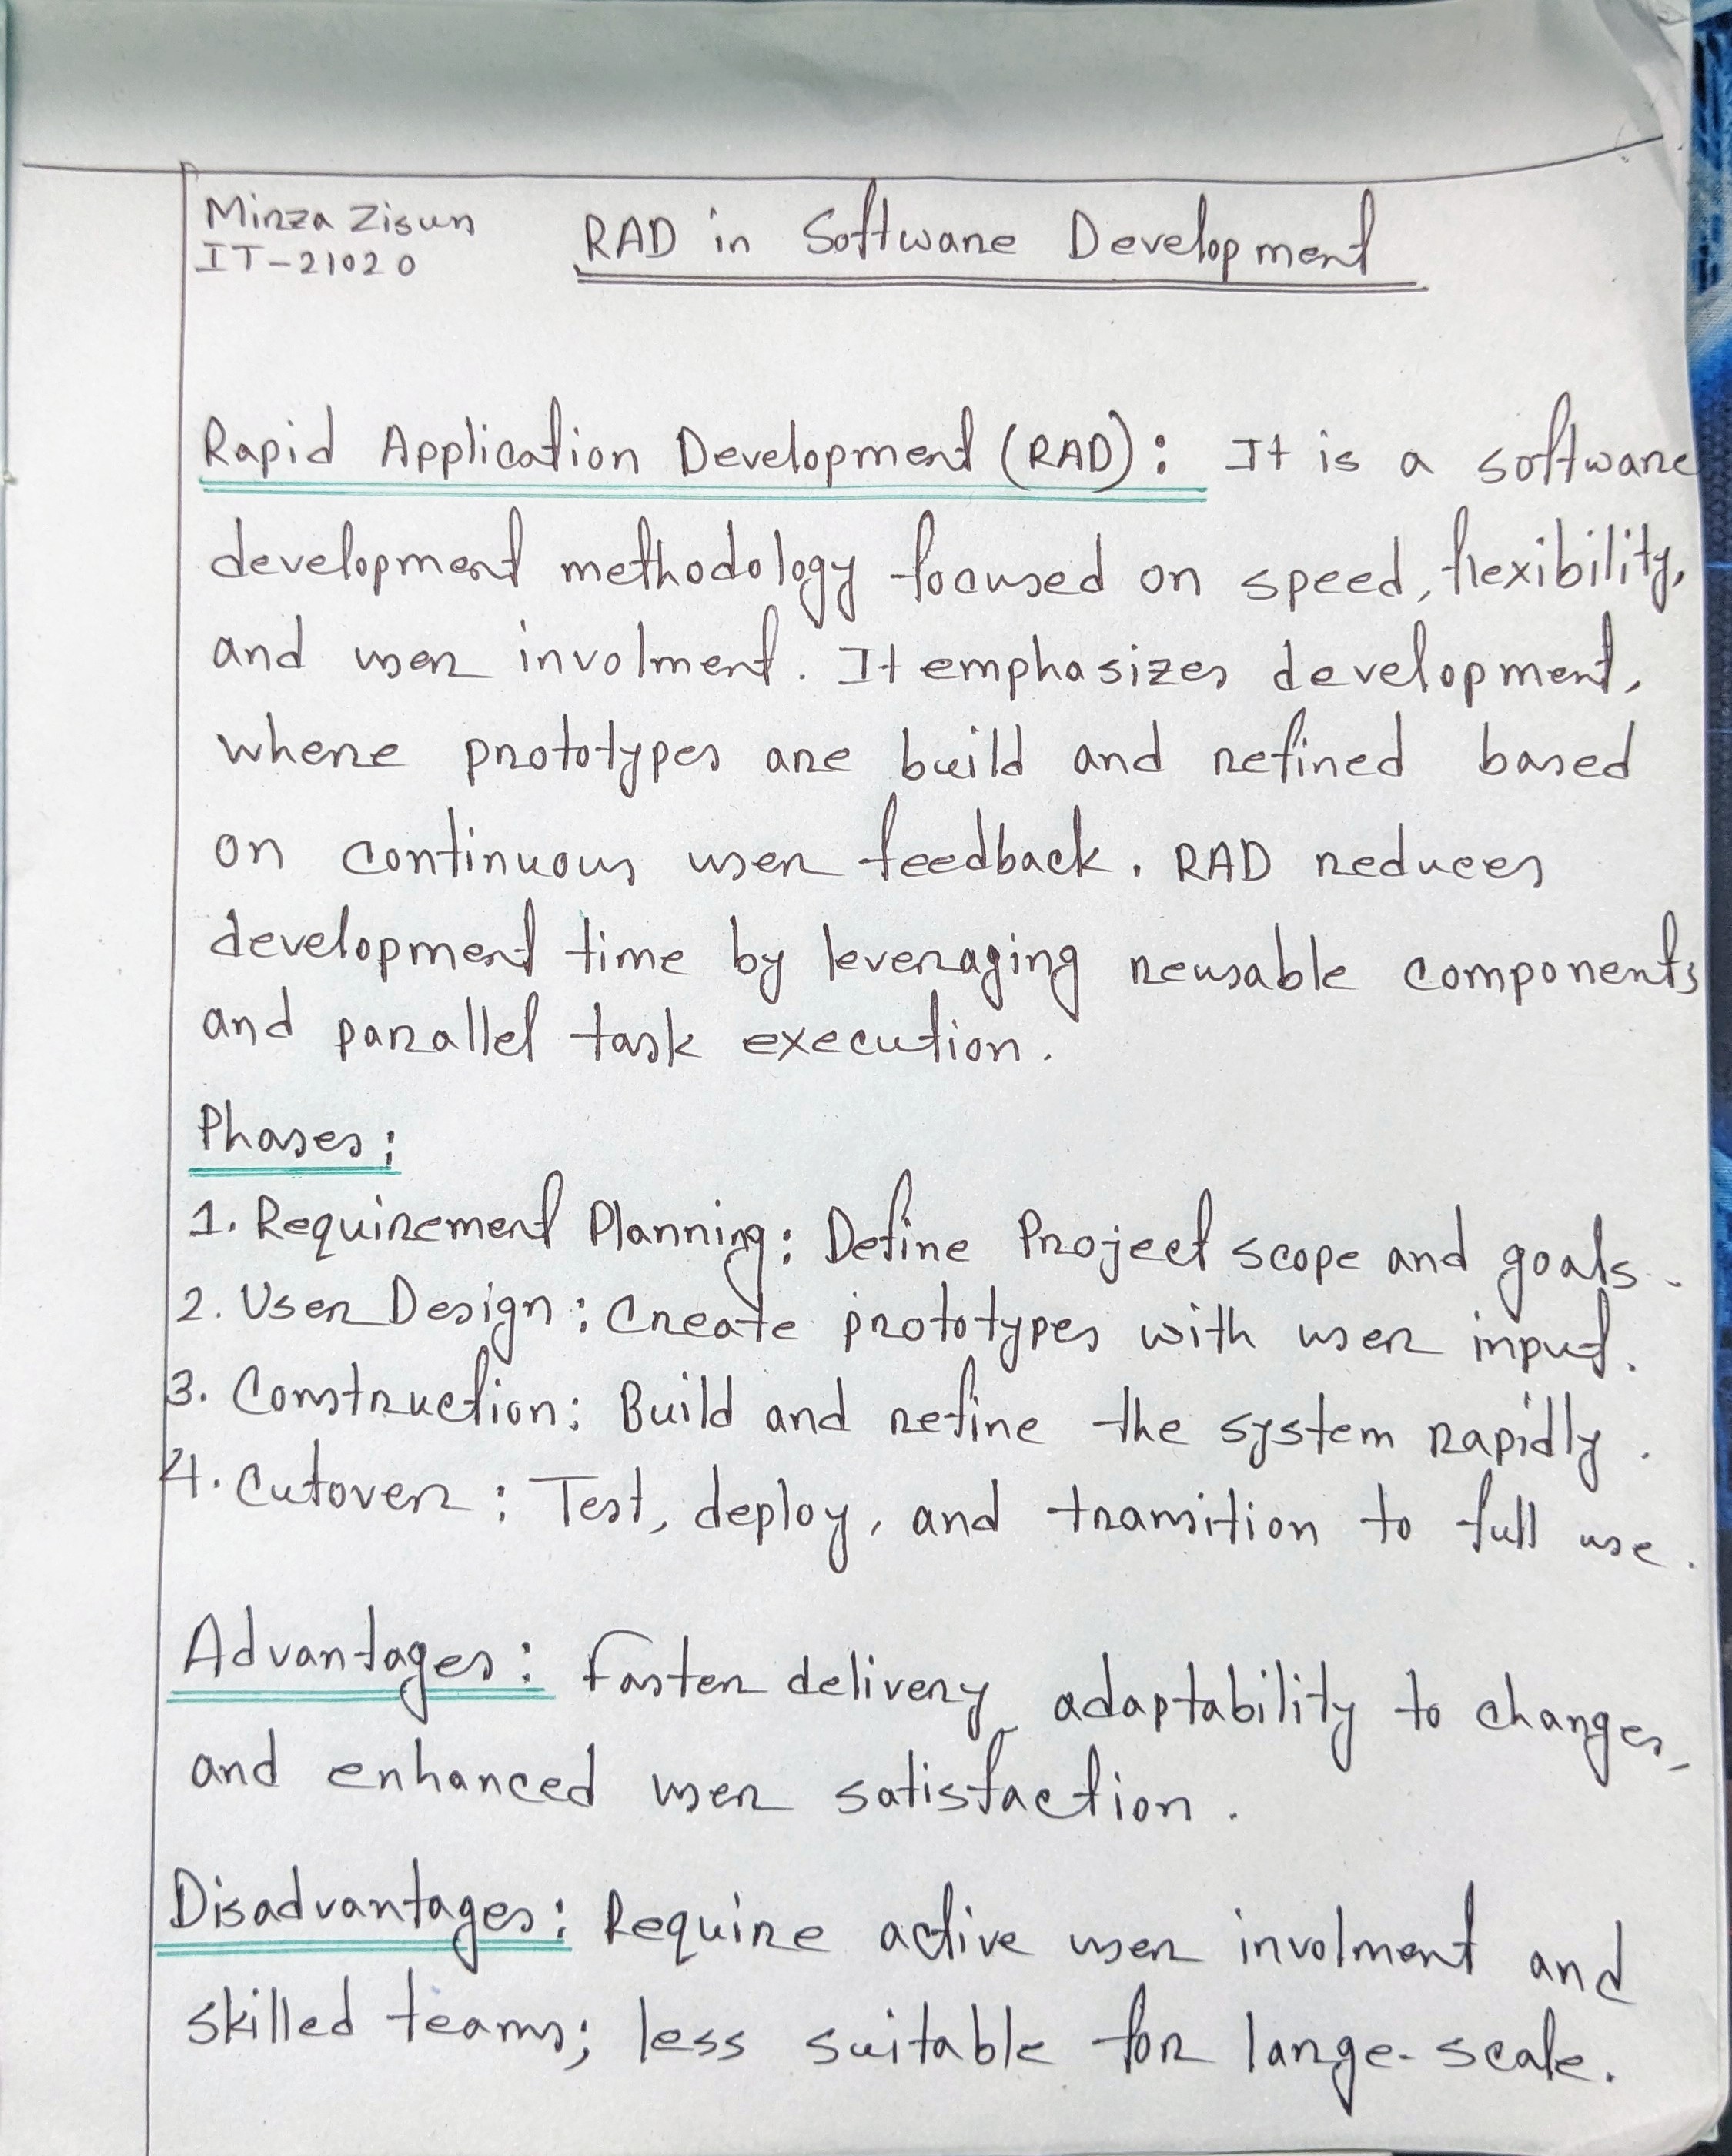 Mirza Zisun
IT-21020
RAD in Software Development
Rapid Application Development (RAD): It is a software
development methodology focused on speed, flexibility,
and user involment. It emphasizes development,
where prototypes are build and refined based
on continuous user feedback. RAD reduces
development time by leveraging reusable components
and parallel task execution.
Phases:
1. Requirement Planning: Define Project scope and goals.
2. User Design: Create prototypes with user input.
3. Construction: Build and refine the system rapidly.
4. Cutover: Test, deploy, and transition to full use.
Advantages: Faster delivery, adaptability to changes,
and enhanced user satisfaction.
Disadvantages: Require active user involment and
skilled teams; less suitable for large-scale.